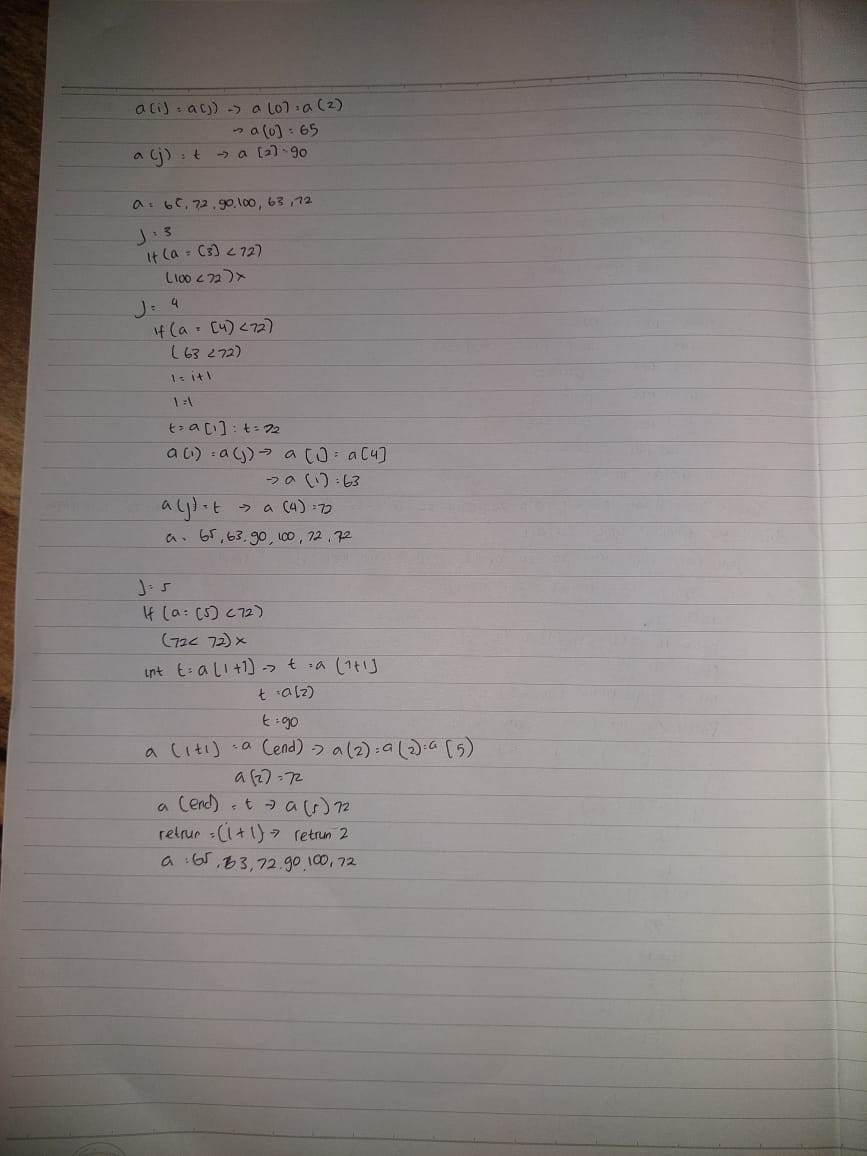 a(i) = a(j) -> a[0] = a(2)
-> a[0] = 65
a(j) = t -> a [2] = 90
a = 65, 72, 90, 100, 63, 72
J = 3
If (a = [3] < 72)
(100 < 72) x
J = 4
If (a = [4] < 72)
(63 < 72)
i = i+1
i = 1
t = a[1] : t = 72
a(i) = a(j) -> a [1] = a[4]
-> a (1) = 63
a(j) = t -> a (4) = 72
a = 65, 63, 90, 100, 72, 72
J = 5
If (a = [5] < 72)
(72 < 72) x
int t = a[i+1] -> t = a [1+1]
t = a(2)
t = 90
a (i+1) = a (end) -> a(2) = a(2) = a [5]
a(2) = 72
a (end) = t -> a(5) 72
retrun = (i+1) -> retrun 2
a = 65, 63, 72, 90, 100, 72